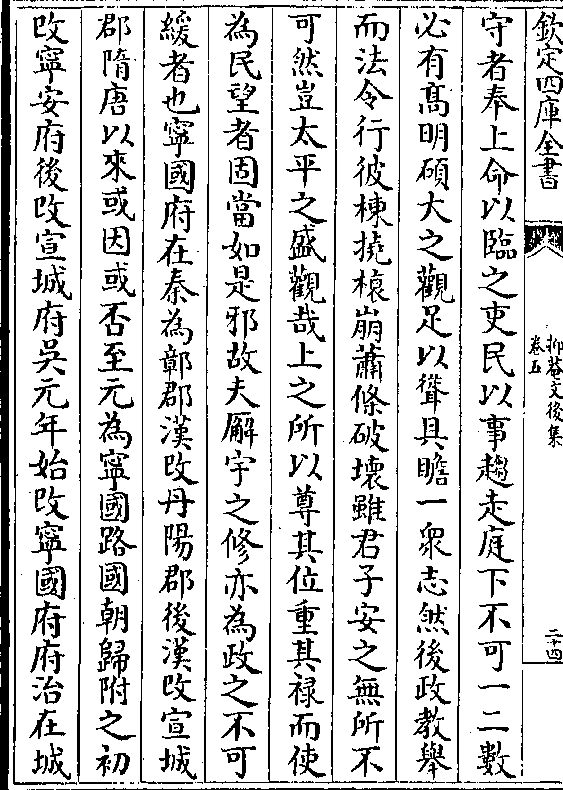 欽定四庫全書
抑菴文後集
卷五
二十四
守者奉上命以臨之吏民以事趨走庭下不可一二數
必有髙明碩大之觀足以聳具瞻一衆志然後政教舉
而法令行彼棟撓榱崩蕭條破壞雖君子安之無所不
可然豈太平之盛觀哉上之所以尊其位重其禄而使
為民望者固當如是邪故夫廨宇之修亦為政之不可
緩者也寧國府在秦為鄣郡漢改丹陽郡後漢改宣城
郡隋唐以來或因或否至元為寧國路國朝歸附之初
改寧安府後改宣城府吳元年始改寧國府府治在城